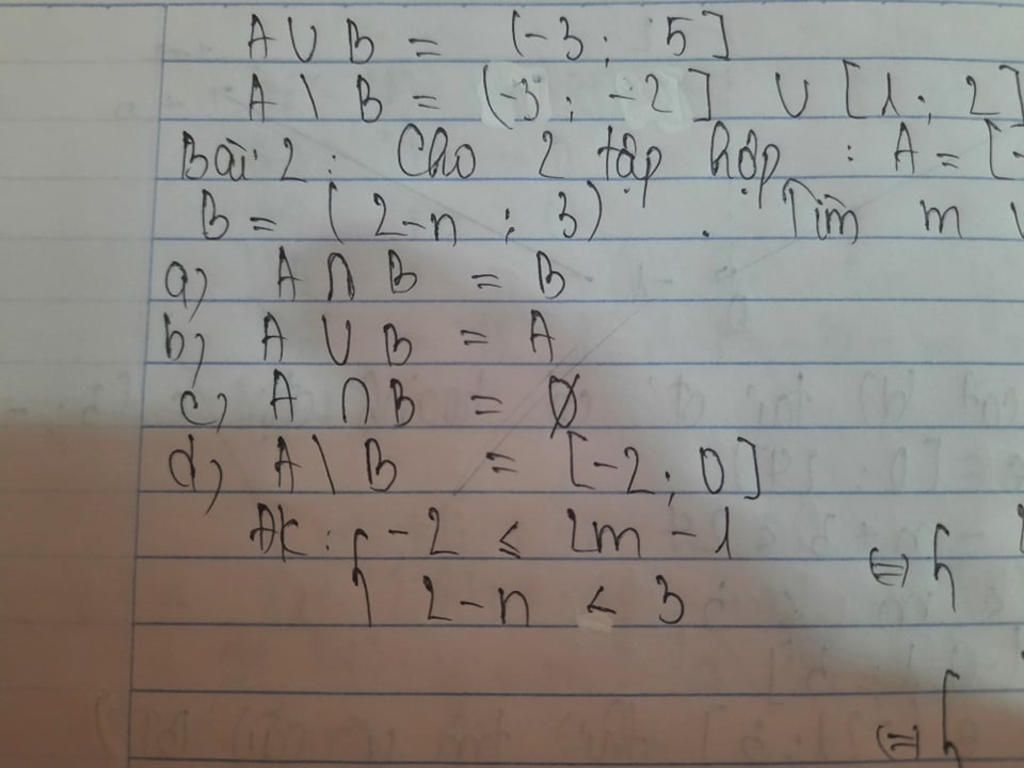 A ∪ B = (-3 ; 5]
A \ B = (-3 ; -2] ∪ [1 ; 2]
Bài 2 : Cho 2 tập hợp : A = [-
B = (2-n ; 3) . Tìm m
a) A ∩ B = B
b) A ∪ B = A
c) A ∩ B = ∅
d) A \ B = [-2 ; 0]
ĐK : { -2 ≤ 2m - 1
{ 2-n < 3
⇔ {
⇔ {